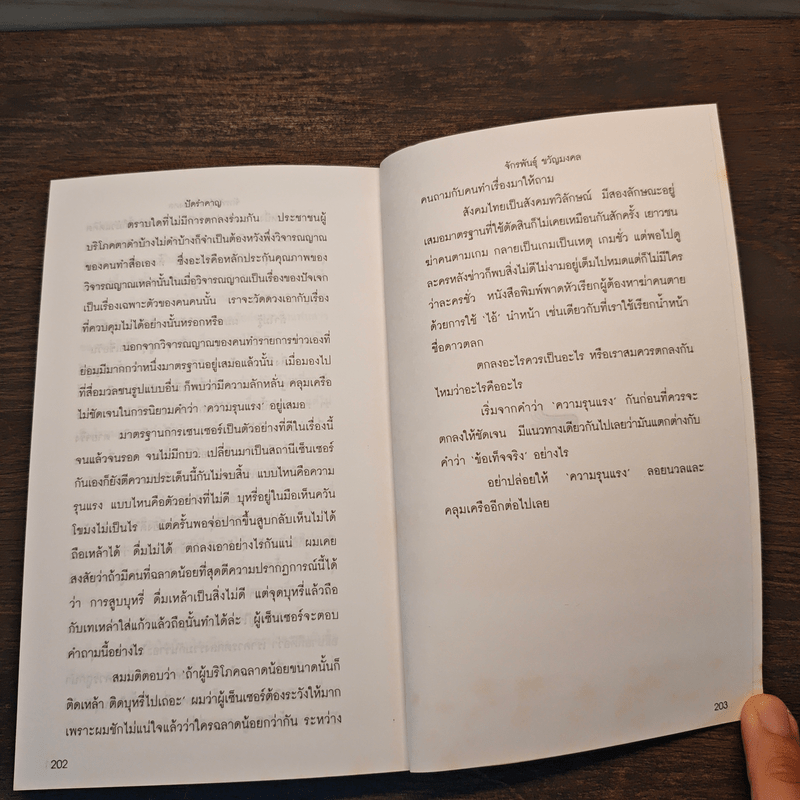 ปัดรำคาญ
ตราบใดที่ไม่มีการตกลงร่วมกัน ประชาชนผู้
บริโภคตาดำบ้างไม่ดำบ้างก็จำเป็นต้องหวังพึ่งวิจารณญาณ
ของคนทำสื่อเอง ซึ่งอะไรคือหลักประกันคุณภาพของ
วิจารณญาณเหล่านั้นในเมื่อวิจารณญาณเป็นเรื่องของปัจเจก
เป็นเรื่องเฉพาะตัวของคนคนนั้น เราจะวัดดวงเอากับเรื่อง
ที่ควบคุมไม่ได้อย่างนั้นหรอกหรือ
นอกจากวิจารณญาณของคนทำรายการข่าวเองที่
ย่อมมีมากกว่าหนึ่งมาตรฐานอยู่เสมอแล้วนั้น เมื่อมองไป
ที่สื่อมวลชนรูปแบบอื่น ก็พบว่ามีความลักหลั่น คลุมเครือ
ไม่ชัดเจนในการนิยามคำว่า ‘ความรุนแรง’ อยู่เสมอ
มาตรฐานการเซนเซอร์เป็นตัวอย่างที่ดีในเรื่องนี้
จนแล้วจนรอด จนไม่มีกบว. เปลี่ยนมาเป็นสถานีเซ็นเซอร์
กันเองก็ยังตีความประเด็นนี้กันไม่จบสิ้น แบบไหนคือความ
รุนแรง แบบไหนคือตัวอย่างที่ไม่ดี บุหรี่อยู่ในมือเห็นควัน
โขมงไม่เป็นไร แต่ครั้นพอจ่อปากขึ้นสูบกลับเห็นไม่ได้
ถือเหล้าได้ ดื่มไม่ได้ ตกลงเอาอย่างไรกันแน่ ผมเคย
สงสัยว่าถ้ามีคนที่ฉลาดน้อยที่สุดตีความปรากฏการณ์นี้ได้
ว่า การสูบบุหรี่ ดื่มเหล้าเป็นสิ่งไม่ดี แต่จุดบุหรี่แล้วถือ
กับเทเหล้าใส่แก้วแล้วถือนั้นทำได้ล่ะ ผู้เซ็นเซอร์จะตอบ
คำถามนี้อย่างไร
สมมติตอบว่า ‘ถ้าผู้บริโภคฉลาดน้อยขนาดนั้นก็
ติดเหล้า ติดบุหรี่ไปเถ่อะ’ ผมว่าผู้เซ็นเซอร์ต้องระวังให้มาก
เพราะผมชักไม่แน่ใจแล้วว่าใครฉลาดน้อยกว่ากัน ระหว่าง
202
จักรพันธุ์ ขวัญมงคล
คนถามกับคนทำเรื่องมาให้ถาม
สังคมไทยเป็นสังคมทวิลักษณ์ มีสองลักษณะอยู่
เสมอมาตรฐานที่ใช้ตัดสินก็ไม่เคยเหมือนกันสักครั้ง เยาวชน
ฆ่าคนตามเกม กลายเป็นเกมเป็นเหตุ เกมชั่ว แต่พอไปดู
ละครหลังข่าวก็พบสิ่งไม่ดีไม่งามอยู่เต็มไปหมดแต่ก็ไม่มีใคร
ว่าละครชั่ว หนังสือพิมพ์พาดหัวเรียกผู้ต้องหาฆ่าคนตาย
ด้วยการใช้ ‘ไอ้’ นำหน้า เช่นเดียวกับที่เราใช้เรียกนำหน้า
ชื่อดาวตลก
ตกลงอะไรควรเป็นอะไร หรือเราสมควรตกลงกัน
ไหมว่าอะไรคืออะไร
เริ่มจากคำว่า ‘ความรุนแรง’ กันก่อนที่ควรจะ
ตกลงให้ชัดเจน มีแนวทางเดียวกันไปเลยว่ามันแตกต่างกับ
คำว่า ‘ข้อเท็จจริง’ อย่างไร
อย่าปล่อยให้ ‘ความรุนแรง’ ลอยนวลและ
คลุมเครืออีกต่อไปเลย
203